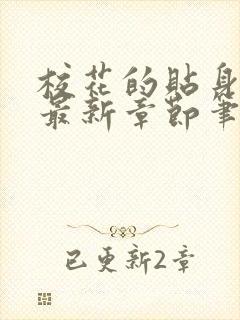 校花的貼身
最新章節筆
已更新2章